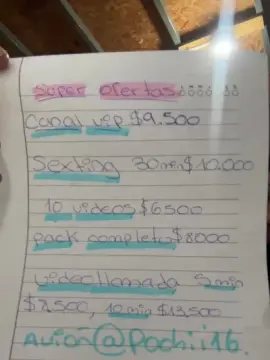 Super ofertas
Canal vip $9.500
Sexting 30min $10.000
10 videos $6500
pack completo $8000
videollamada 5min
$8,500, 10 min $13,500
AVION@Pochii16